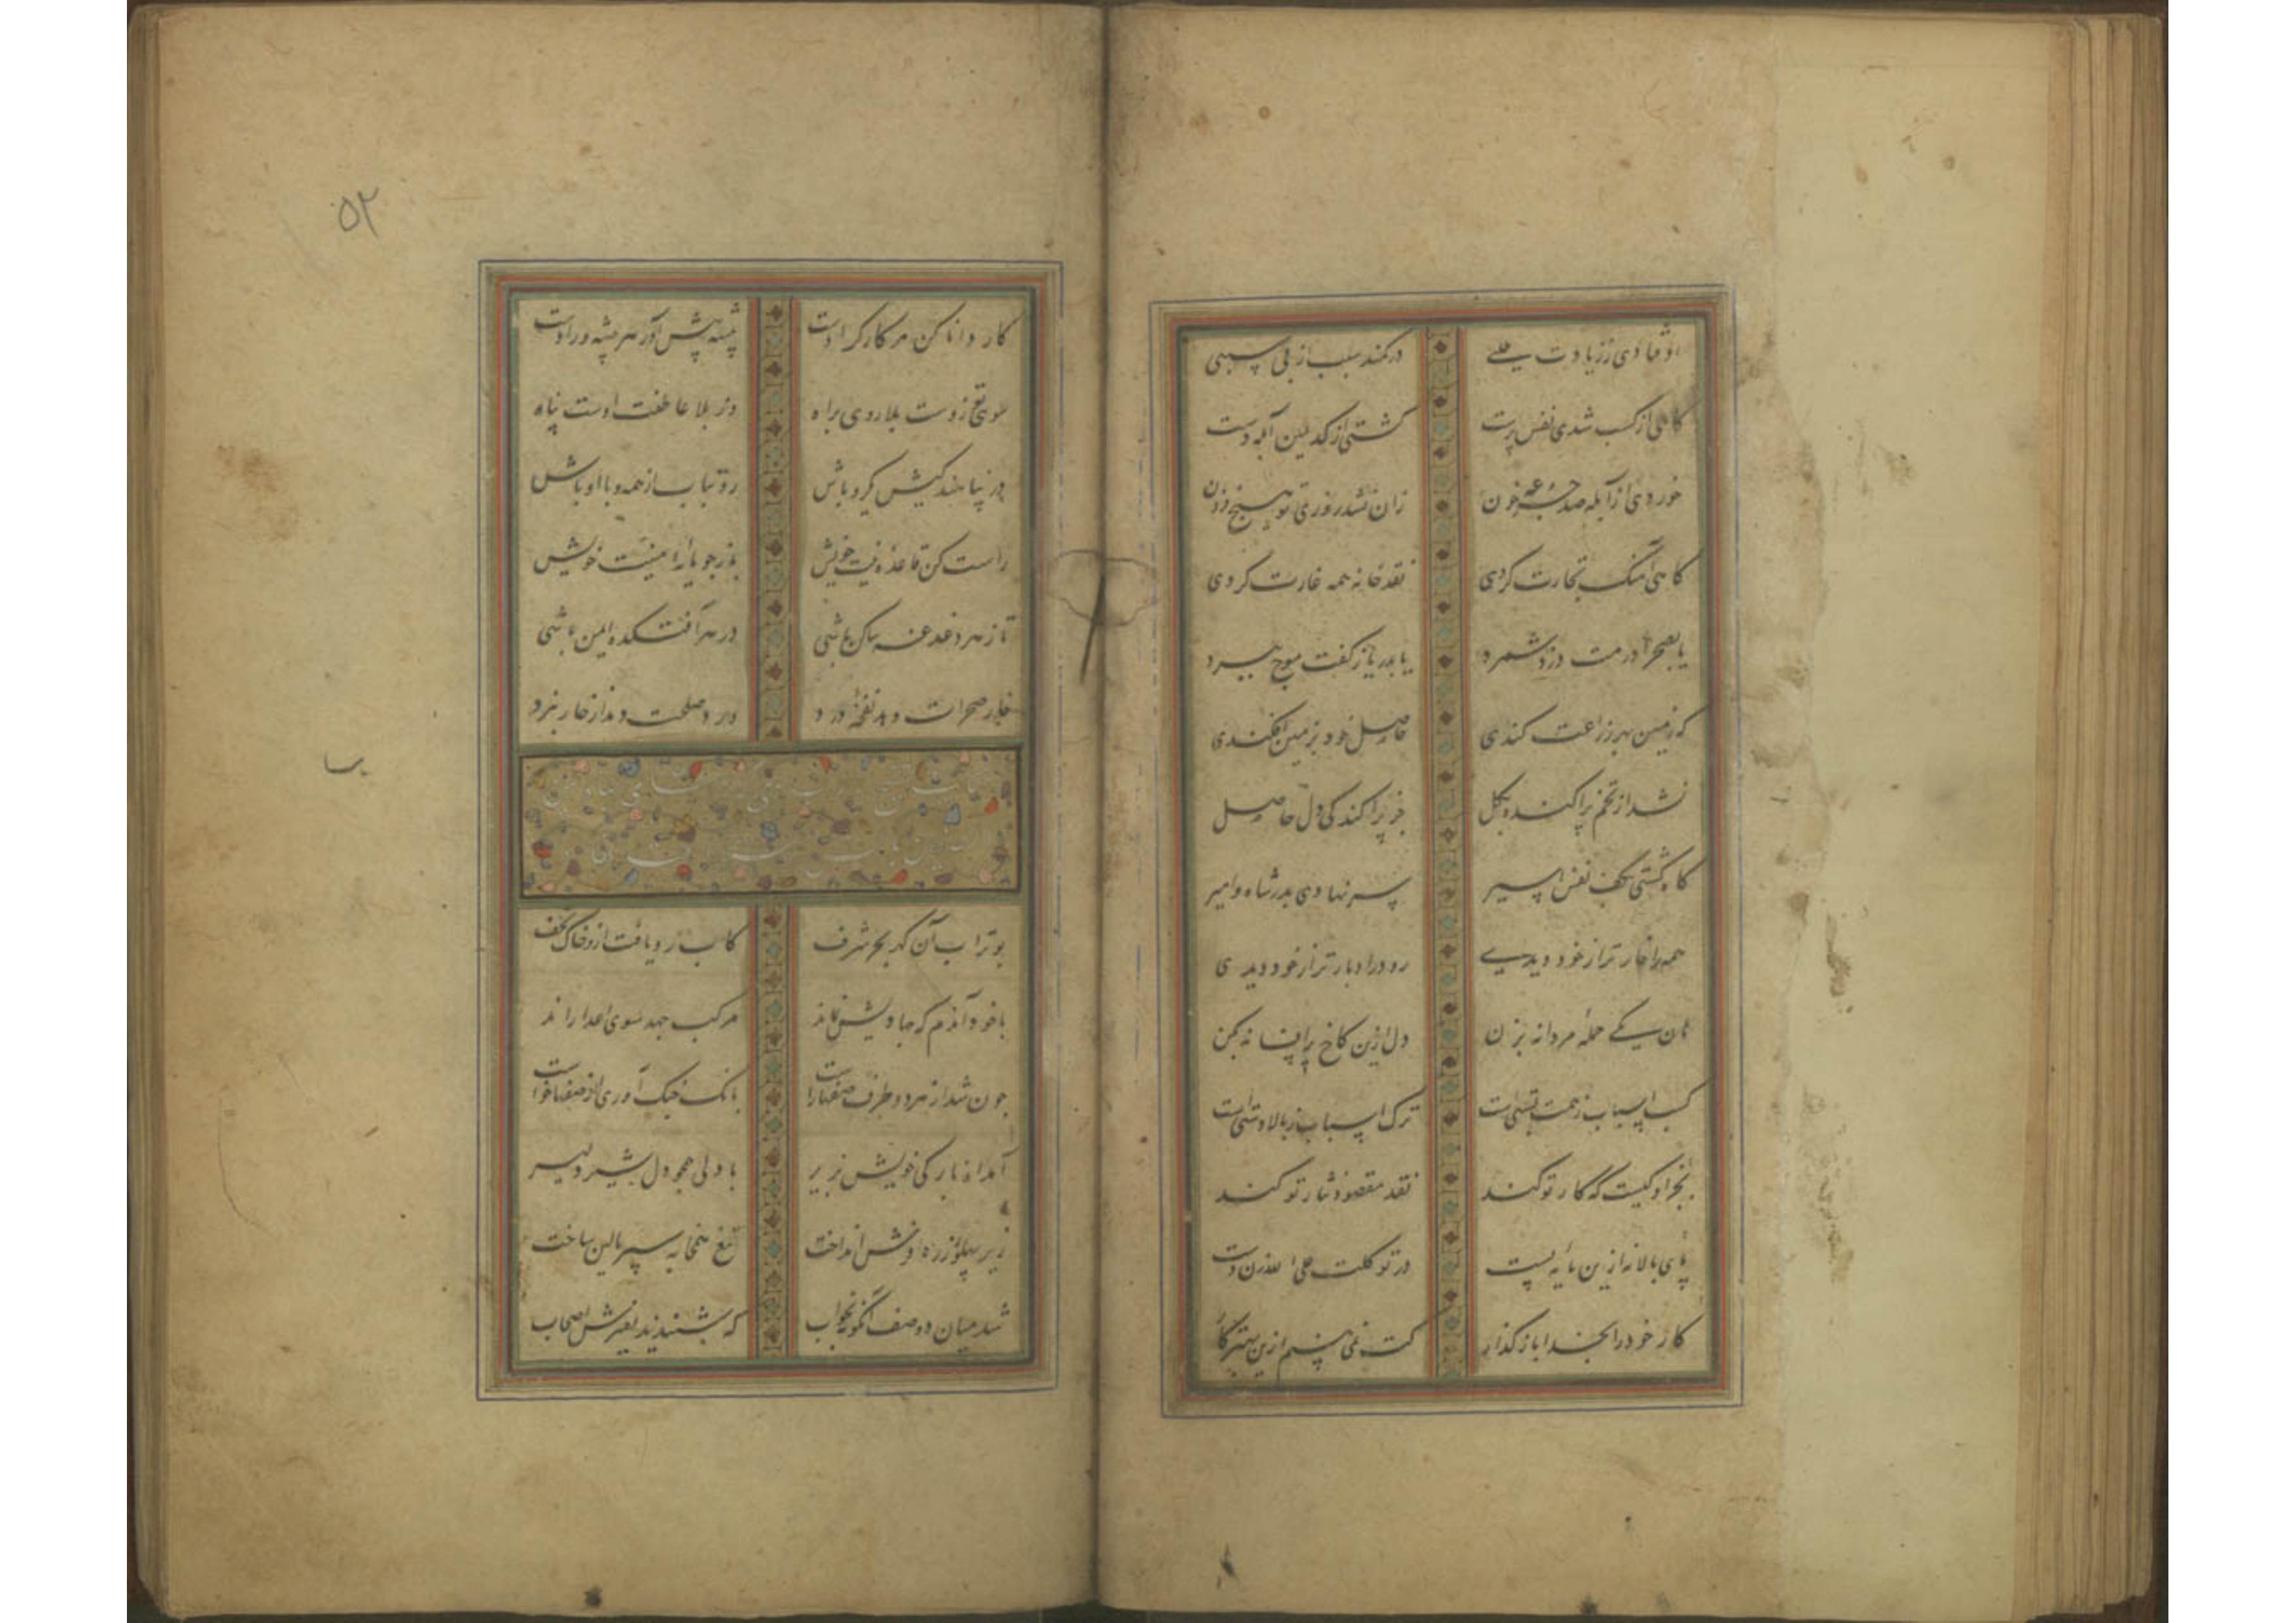 اوفتادی ز زیادت طلبی در کمند سبب از بی سببی
گاهی از کسب شدی نفس پرست گشتی از کد یمین آبله دست
خوردی از آبله صد جرعه خون زان نشد روزی تو هیچ فزون
گاهی آهنگ تجارت کردی نقد خانه همه غارت کردی
یا بصحرا درمت دزد شمرد یا بدریا ز کفت موج ببرد
که زمین بهر زراعت کندی حاصل خود بزمین افکندی
نشد از تخم پراکنده بگل جز پراکندگی دل حاصل
گاه گشتی بکف نفس اسیر سر نهادی بدر شاه و امیر
همه را خوارتر از خود دیدی رو در ادبارتر از خود دیدی
هان یکی حمله مردانه بزن دل ازین کاخ پر افسانه بکن
کسب اسباب ز همت پستی است ترک اسباب ز بالادستی است
بجز او کیست که کار تو کند نقد مقصود نثار تو کند
پای بالا نه ازین پایه پست در توکلت علی الله زن دست
کار خود را بخدا باز گذار کت نمی بینم ازین بهتر کار
۵۲
کار دانا کن هر کارگر اوست پیشه پیش آور هر پیشه ور اوست
سوی تو زوست بلا روی براه وز بلا عاطفت اوست پناه
در پناهندگیش کرد باش رو بتاب از همه و با او باش
راست کن قاعده نیت خویش باز جو پایه امنیت خویش
تا ز هر دغدغه ساکن باشی در هر آفتکده ایمن باشی
خاور صحرات دهد نفحه ورد ورد صلحت دمد از خار نبرد
بوتراب آن گهر بحر شرف کاب رو یافت ازو خاک نجف
با خود آندم که جاویش نماند مرکب جهد سوی اعدا راند
چون شد از هر دو طرف صفها راست بانک جنگ آوری از صفها خواست
آمد از بارگی خویش بزیر با دلی همچو دل شیر دلیر
زیر پهلو زره فرش انداخت تیغ همخابه سپر بالین ساخت
شد میان دو صف آنگونه بخواب که شنیدند نفیرش اصحاب